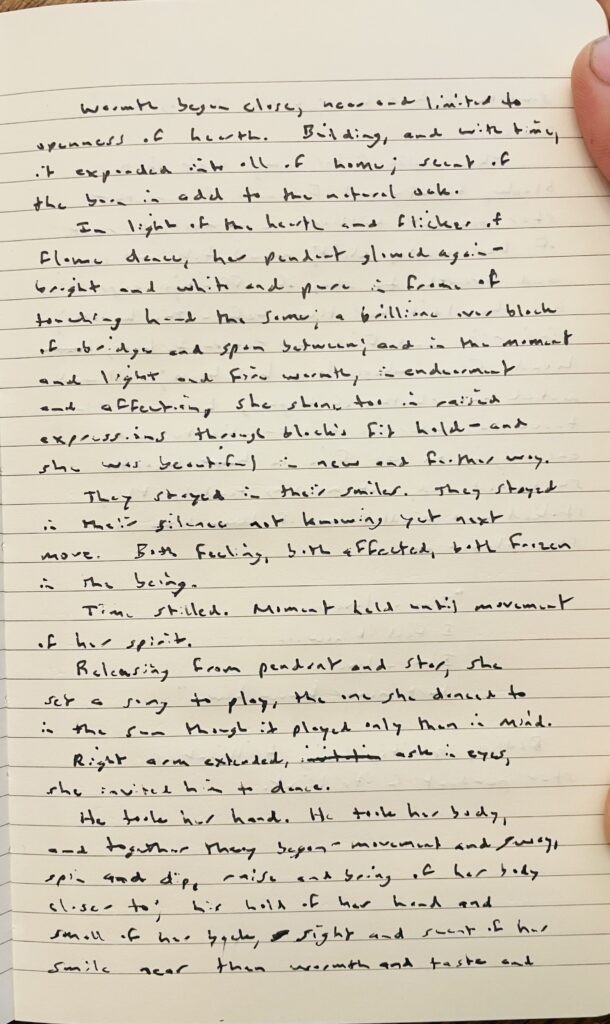 Warmth began close, near and limited to
openness of hearth. Building, and with time,
it expanded into all of home; scent of
the burn in add to the natural oak.
In light of the hearth and flicker of
flame dance, her pendant glowed again-
bright and white and pure in frame of
touching hand the same; a brilliance over black
of bridge and span between; and in the moment
and light and fire warmth, in endearment
and affecting, she shone too in raised
expressions through black's fit hold-and
she was beautiful in new and further way.
They stayed in their smiles. They stayed
in their silence not knowing yet next
move. Both feeling, both affected, both frozen
in the being.
Time stilled. Moment held until movement
of her spirit.
Releasing from pendant and star, she
set a song to play, the one she danced to
in the sun though it played only then in mind.
Right arm extended, ask in eyes,
she invited him to dance.
He took her hand. He took her body,
and together they began-movement and sway,
spin and dip, raise and bring of her body
closer to; his hold of her hand and
small of her back, sight and scent of her
smile near then warmth and taste and